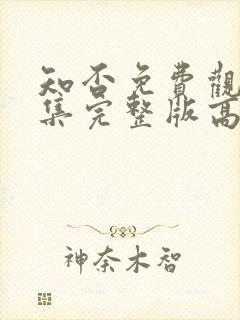 知否免費觀
集完整版高
神奈木智